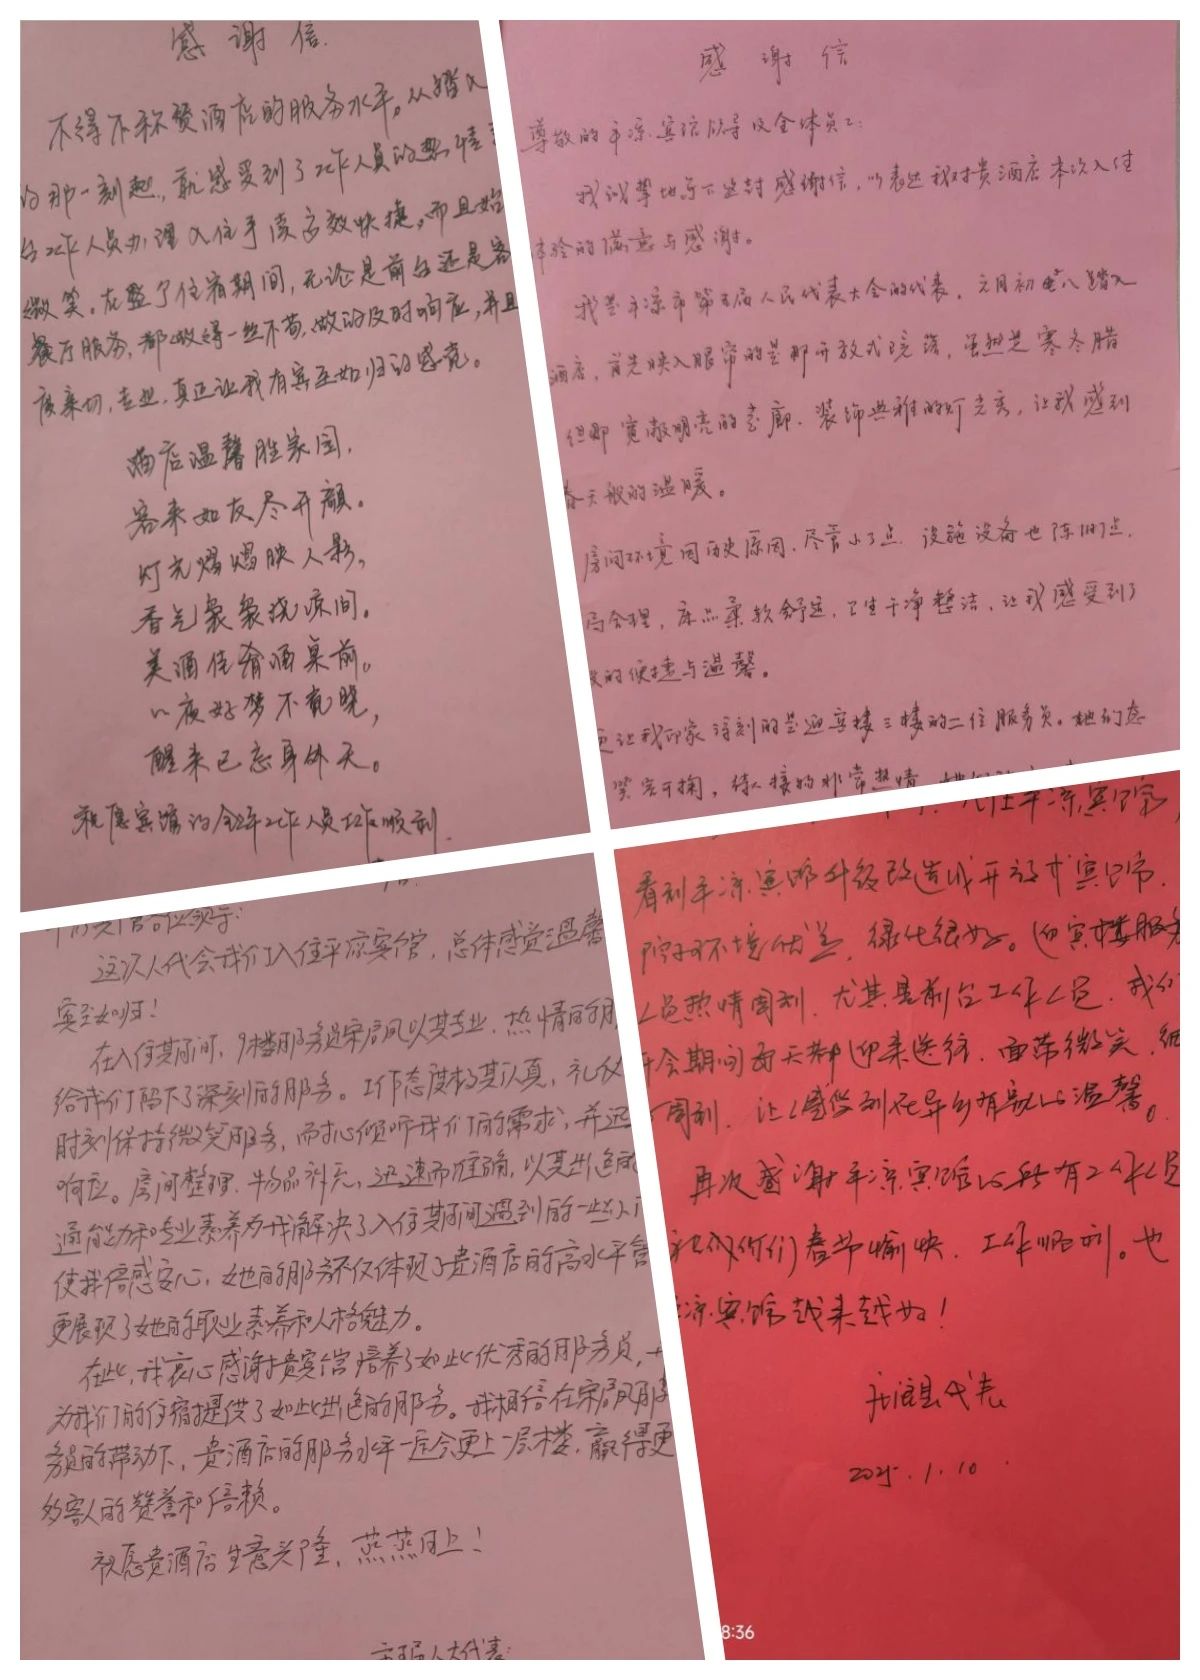 感谢信
不得不称赞酒店的服务水平。从踏入
的那一刻起，就感受到了工作人员的热情
台工作人员办理入住手续高效快捷。而且始
微笑。在整个住宿期间，无论是前台还是客
餐厅服务，都做得一丝不苟，做的及时响应，并且
度亲切，专业，真正让我有宾至如归的感觉。
酒店温馨胜家园，
客来如友尽开颜。
灯光熠熠映人影，
香气袅袅绕凉间。
美酒佳肴酒桌前。
一夜好梦不觉晓，
醒来已忘身休天。
祝愿宾馆的全体工作人员工作顺利
感谢信
尊敬的平凉宾馆领导及全体员工：
我诚挚地写下这封感谢信，以表达我对贵酒店本次入住
体验的满意与感谢。
我是平凉市第五届人民代表大会的代表，元月初八踏入
酒店，首先映入眼帘的是那开放式院落，虽然是寒冬腊
但那宽敞明亮的走廊、装饰典雅的灯光亮，让我感到
春天般的温暖。
房间环境因历史原因，尽管小了点，设施设备也陈旧点，
局合理，床品柔软舒适，卫生干净整洁，让我感受到了
的便捷与温馨。
更让我印象深刻的是迎宾楼三楼的二位服务员。她们态
笑容可掬，待人接物非常热情
这次人代会我们入住平凉宾馆，总体感觉温馨
宾至如归！
在入住期间，9楼服务员宋启凤以其专业、热情的服
给我们留下了深刻的服务。工作态度极其认真，礼仪
时刻保持微笑服务，耐心倾听我们的需求，并迅
响应。房间整理、物品补充，迅速而准确，以其出色的
通能力和专业素养为我解决了入住期间遇到的一些小
使我倍感安心，她的服务不仅体现了贵酒店的高水平管
更展现了她的职业素养和人格魅力。
在此，我衷心感谢贵宾馆培养了如此优秀的服务员，
为我们的住宿提供了如此出色的服务。我相信在宋启凤服
务员的带动下，贵酒店的服务水平一定会更上一层楼，赢得更
多客人的赞誉和信赖。
祝愿贵酒店生意兴隆，蒸蒸日上！
人大代表：
入住平凉宾馆，
看到平凉宾馆升级改造成开放式宾馆，
院子环境优美，绿化很好。迎宾楼服务
人员热情周到，尤其是前台工作人员，我们
开会期间每天都迎来送往，面带微笑，细
周到，让人感受到在异乡有家的温馨。
再次感谢平凉宾馆的所有工作人员
祝你们春节愉快，工作顺利。也
凉宾馆越来越好！
县代表
2025.1.10
8:36